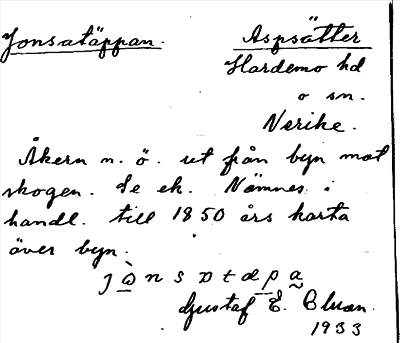 Jonsatäppan. Aspsätter
Hardemo hd
o sn.
Nerike.
Åkern n. ö. ut från byn mot
skogen. Se ek. Nämnes i
handl. till 1850 års karta
över byn.
Gustaf E. Bluan.
1933